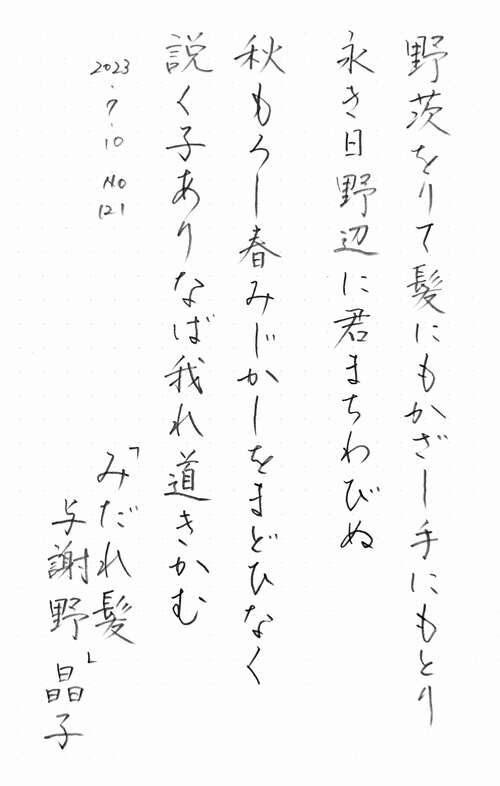 野茨をりて髪にもかざし手にもとり
永き日野辺に君まちわびぬ
秋もろし春みじかしをまどひなく
説く子ありなば我れ道きかむ
「みだれ髪」
与謝野 晶子
2023.7.10 No 121